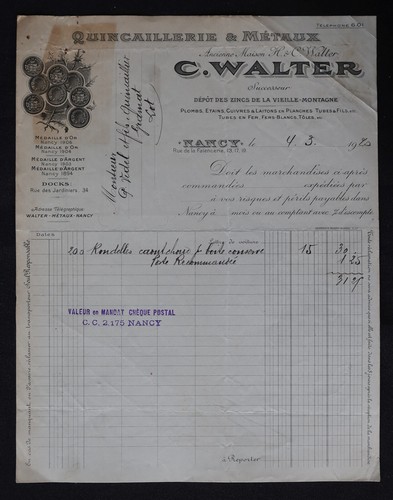 TÉLÉPHONE 6.01
QUINCAILLERIE & MÉTAUX
Ancienne Maison H. & C. Walter
C. WALTER
Successeur
DÉPÔT DES ZINCS DE LA VIEILLE-MONTAGNE
PLOMBS, ÉTAINS, CUIVRES & LAITONS EN PLANCHES, TUBES & FILS, ETC.
TUBES EN FER, FERS-BLANCS, TÔLES, ETC.
MÉDAILLE D'OR
Nancy 1909
MÉDAILLE D'OR
Nancy 1904
MÉDAILLE D'ARGENT
MÉDAILLE D'ARGENT
Nancy 1894
DOCKS
Rue des Jardiniers, 36
Adresse Télégraphique
WALTER-MÉTAUX-NANCY
Monsieur
Vialet et fils, quincaillier
Gramat
Lot
NANCY le 4. 3. 192
Rue de la Faïencerie, 13, 17, 19
Doit les marchandises ci-après
commandées expédiées par
à vos risques et périls payables dans
Nancy à mois ou au comptant avec % d'escompte
Dates
200 Rondelles caoutchouc p boite conserve 15 30
Poste Recommandée 1 25
31 25
VALEUR en MANDAT CHÈQUE POSTAL
C. C. 2.175 NANCY
à Reporter